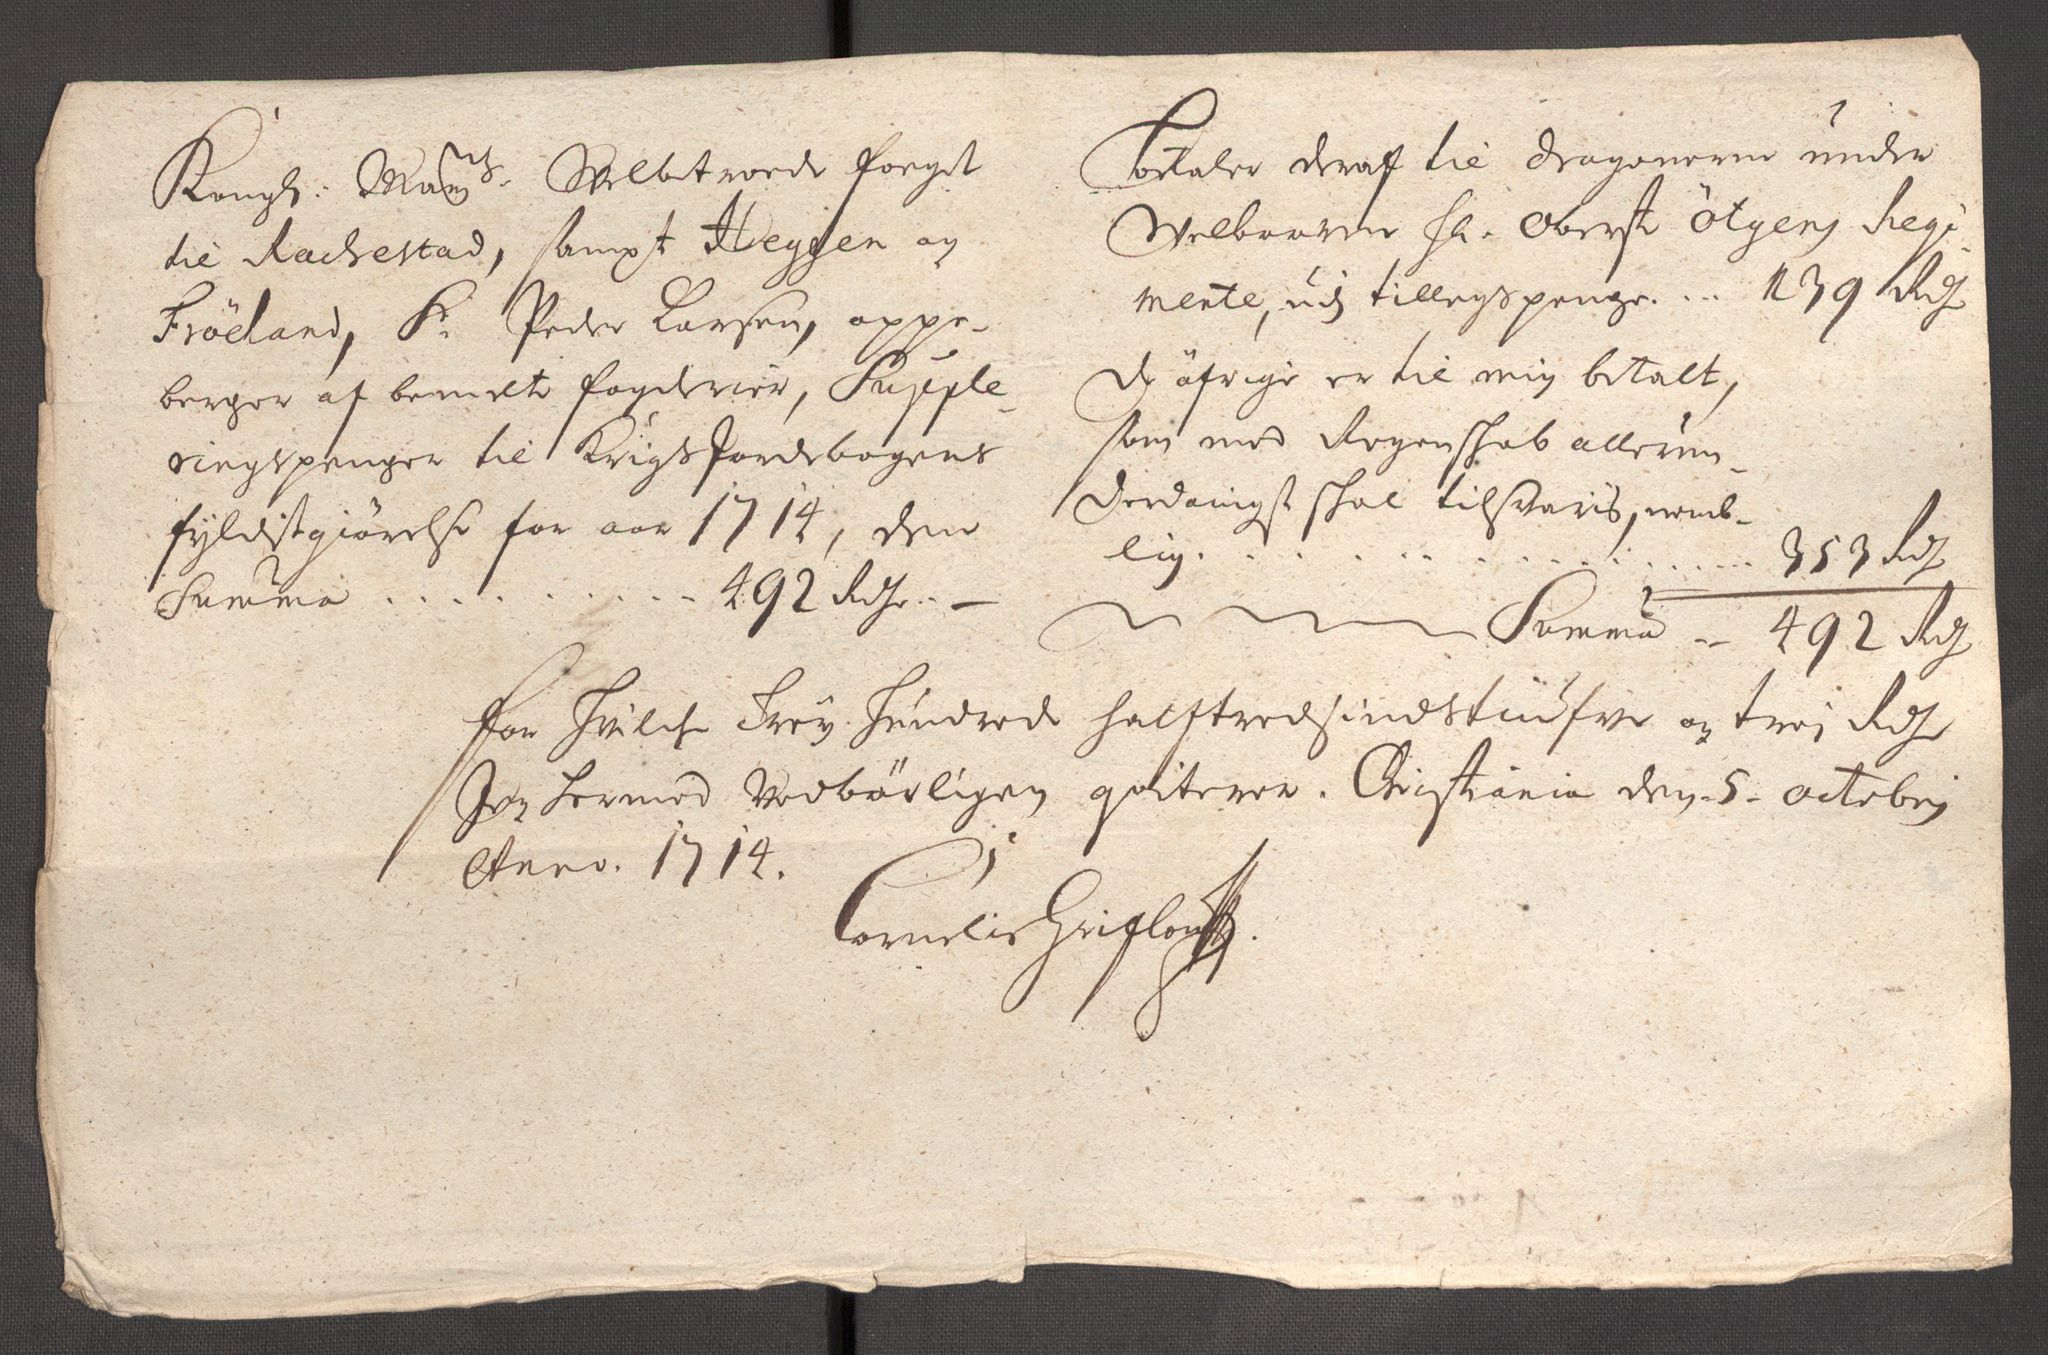 Kongl: May:ts Welbetroede foeget
til Rachestad, sampt Heggen og
Fröeland, Sr Peder Larsen, oppe-
berger af bemelte fogderier, Supple-
ringspenger til Krigs Jordebogens
fyldistgiörelse for aar 1714, den
Summa . . . . . . . . . . 492 Rdr. . —
Betaler deraf til dragonerne under
Welbaarne Hr. Oberst Ötgens Regi-
mente, udj tillegspenge. ... 139 Rdr
De öfrige er til mig betalt,
som med Regenschab allerun-
derdanigst schal tilsvaris, nemb-
lig. . . . . . . . . . . 353 Rdr
Summa — 492 Rdr
For hvilche Trey hundrede halftredsindstiufve og trej Rdr
Jeg hermed vedbörligen qviterer. Christiania den. 5. octobrj
Anno. 1714.
Cornelis